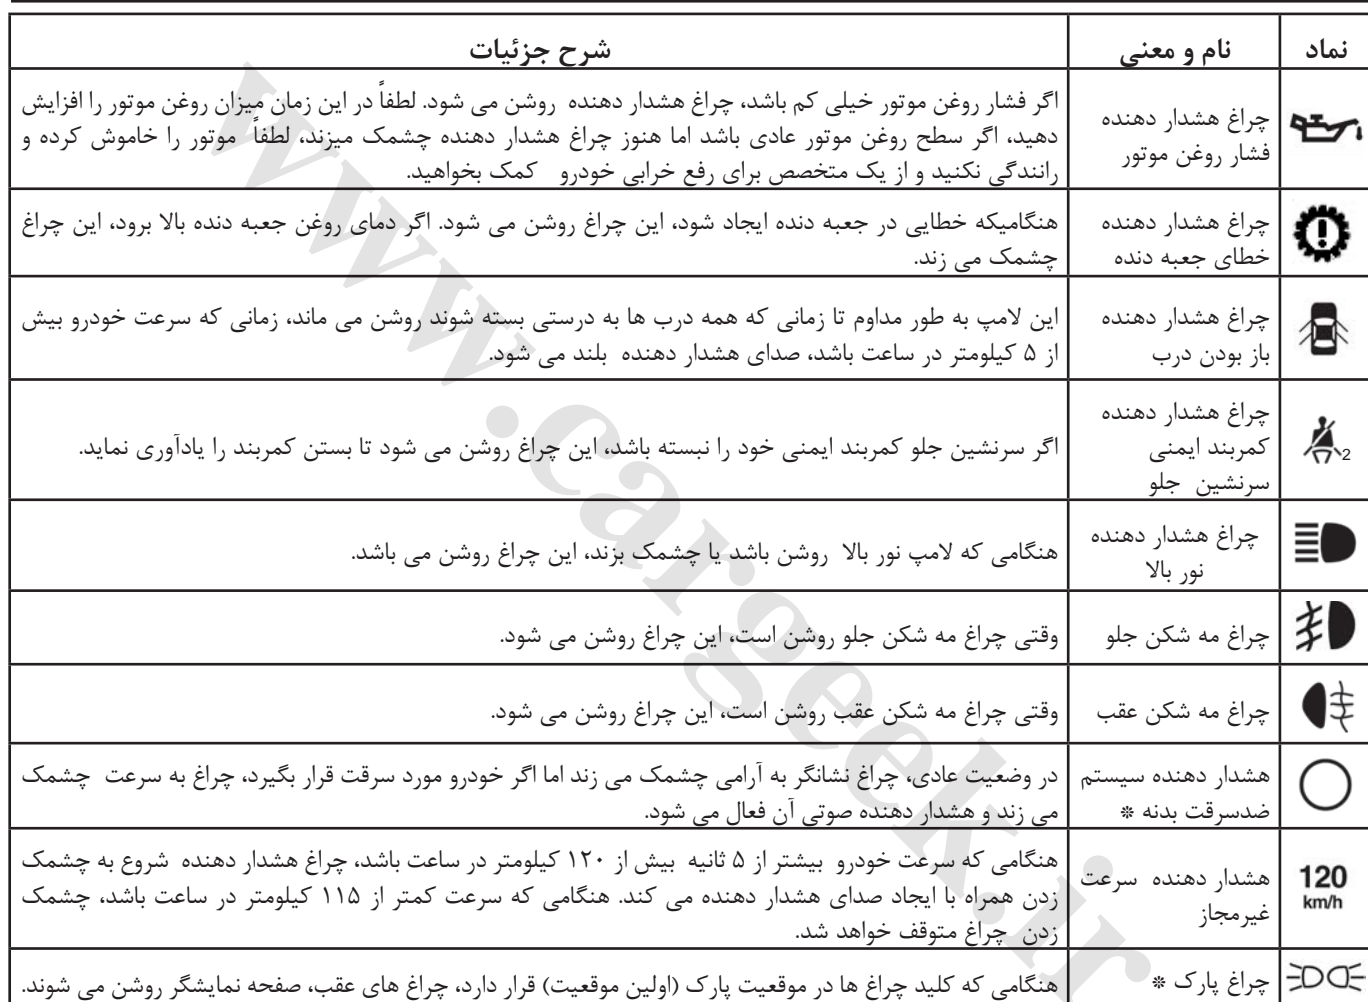 نماد نام و معنی شرح جزئیات
چراغ هشدار دهنده
فشار روغن موتور
اگر فشار روغن موتور خیلی کم باشد، چراغ هشدار دهنده روشن می شود. لطفاً در این زمان میزان روغن موتور را افزایش
دهید، اگر سطح روغن موتور عادی باشد اما هنوز چراغ هشدار دهنده چشمک میزند، لطفاً موتور را خاموش کرده و
رانندگی نکنید و از یک متخصص برای رفع خرابی خودرو کمک بخواهید.
چراغ هشدار دهنده
خطای جعبه دنده
هنگامیکه خطایی در جعبه دنده ایجاد شود، این چراغ روشن می شود. اگر دمای روغن جعبه دنده بالا برود، این چراغ
چشمک می زند.
چراغ هشدار دهنده
باز بودن درب
این لامپ به طور مداوم تا زمانی که همه درب ها به درستی بسته شوند روشن می ماند، زمانی که سرعت خودرو بیش
از ۵ کیلومتر در ساعت باشد، صدای هشدار دهنده بلند می شود.
2
چراغ هشدار دهنده
کمربند ایمنی
سرنشین جلو
اگر سرنشین جلو کمربند ایمنی خود را نبسته باشد، این چراغ روشن می شود تا بستن کمربند را یادآوری نماید.
چراغ هشدار دهنده
نور بالا
هنگامی که لامپ نور بالا روشن باشد یا چشمک بزند، این چراغ روشن می باشد.
چراغ مه شکن جلو
وقتی چراغ مه شکن جلو روشن است، این چراغ روشن می شود.
چراغ مه شکن عقب
وقتی چراغ مه شکن عقب روشن است، این چراغ روشن می شود.
هشدار دهنده سیستم
ضدسرقت بدنه *
در وضعیت عادی، چراغ نشانگر به آرامی چشمک می زند اما اگر خودرو مورد سرقت قرار بگیرد، چراغ به سرعت چشمک
می زند و هشدار دهنده صوتی آن فعال می شود.
120
km/h
هشدار دهنده سرعت
غیرمجاز
هنگامی که سرعت خودرو بیشتر از ۵ ثانیه بیش از ۱۲۰ کیلومتر در ساعت باشد، چراغ هشدار دهنده شروع به چشمک
زدن همراه با ایجاد صدای هشدار دهنده می کند. هنگامی که سرعت کمتر از ۱۱۵ کیلومتر در ساعت باشد، چشمک
زدن چراغ متوقف خواهد شد.
چراغ پارک *
هنگامی که کلید چراغ ها در موقعیت پارک (اولین موقعیت) قرار دارد، چراغ های عقب، صفحه نمایشگر روشن می شوند.
www.cargeek.ir